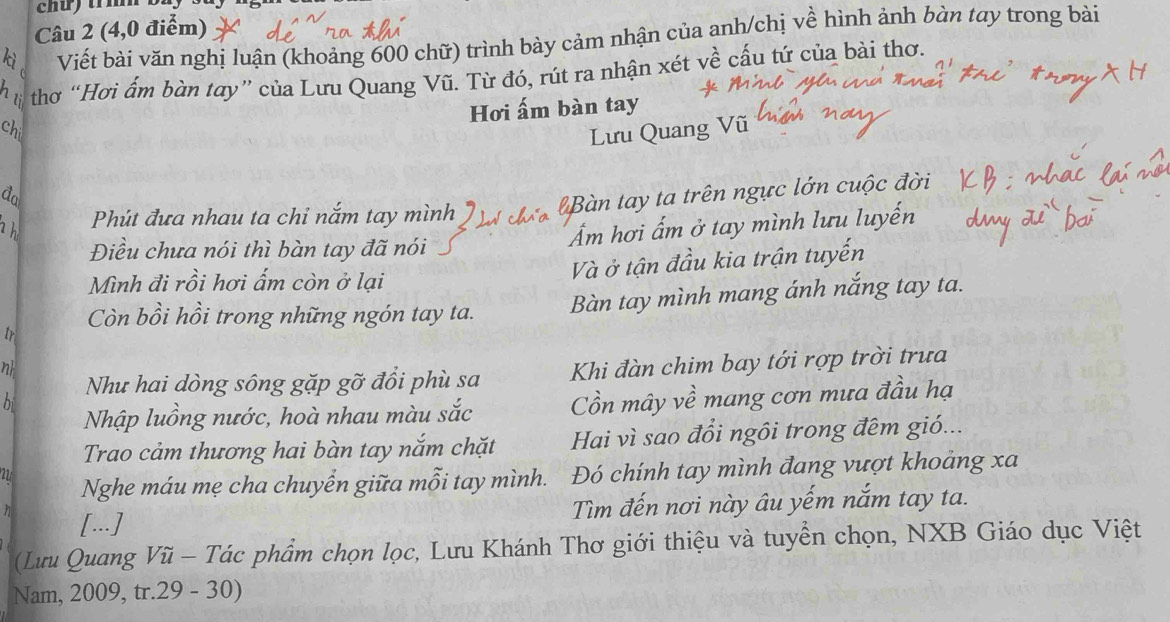 Câu 2 (4,0 điểm) * dễ ra thi
Viết bài văn nghị luận (khoảng 600 chữ) trình bày cảm nhận của anh/chị về hình ảnh bàn tay trong bài
thơ “Hơi ấm bàn tay” của Lưu Quang Vũ. Từ đó, rút ra nhận xét về cấu tứ của bài thơ.
trong XH
Hơi ấm bàn tay
Lưu Quang Vũ
nay
Phút đưa nhau ta chỉ nắm tay mình
Điều chưa nói thì bàn tay đã nói
Mình đi rồi hơi ấm còn ở lại
Còn bồi hồi trong những ngón tay ta.
Như hai dòng sông gặp gỡ đổi phù sa
Nhập luồng nước, hoà nhau màu sắc
Trao cảm thương hai bàn tay nắm chặt
Nghe máu mẹ cha chuyển giữa mỗi tay mình.
[...]
Bàn tay ta trên ngực lớn cuộc đời
Ấm hơi ấm ở tay mình lưu luyến
Và ở tận đầu kia trận tuyến
Bàn tay mình mang ánh nắng tay ta.
KB: nhắc lại
Khi đàn chim bay tới rợp trời trưa
Cồn mây về mang cơn mưa đầu hạ
Hai vì sao đổi ngôi trong đêm gió...
Đó chính tay mình đang vượt khoảng xa
Tìm đến nơi này âu yếm nắm tay ta.
(Lưu Quang Vũ – Tác phẩm chọn lọc, Lưu Khánh Thơ giới thiệu và tuyển chọn, NXB Giáo dục Việt
Nam, 2009, tr.29 - 30)